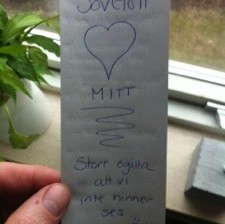 MITT
Stort ogilla
att vi
inte hinner
ses